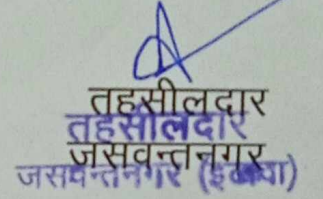 तहसीलदार
तहसीलदार
जसवन्तनगर
जसवन्तनगर (इटावा)